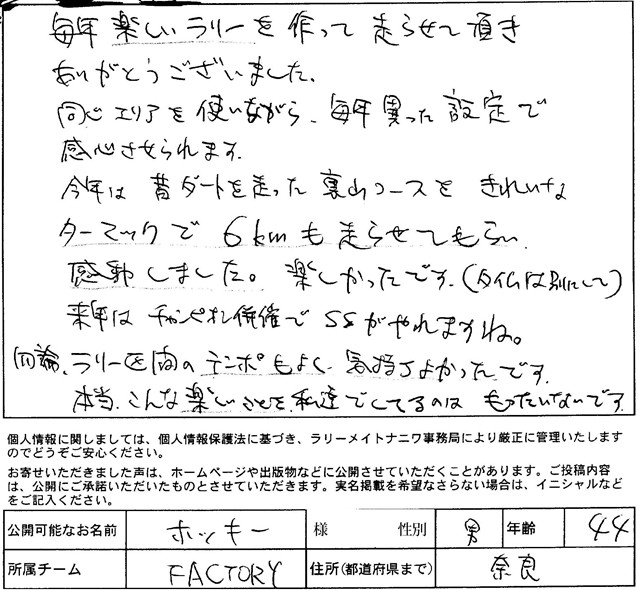 毎年 楽しい ラリーを 作って 走らせて 頂き
ありがとうございました。
同じ エリアを 使いながら、毎年 異った 設定で
感心させられます。
今年は 昔ダートを走った 裏山コースを きれいな
ターマックで 6kmも走らせてもらい
感動しました。楽しかったです。(タイムは別にして)
来年は チャンピオン併催で SSがやれますね。
勿論、ラリー区間の テンポもよく、気持ちよかったです。
本当、こんな楽しいことを 私達でしてるのは もったいないです
個人情報に関しましては、個人情報保護法に基づき、ラリーメイトナニワ事務局により厳正に管理いたします
のでどうぞご安心ください。
お寄せいただきました声は、ホームページや出版物などに公開させていただくことがあります。ご投稿内容
は、公開にご承諾いただいたものとさせていただきます。実名掲載を希望なさらない場合は、イニシャルなど
をご記入ください。
公開可能なお名前 ホッキー 様 性別 男 年齢 44
所属チーム FACTORY 住所(都道府県まで) 奈良